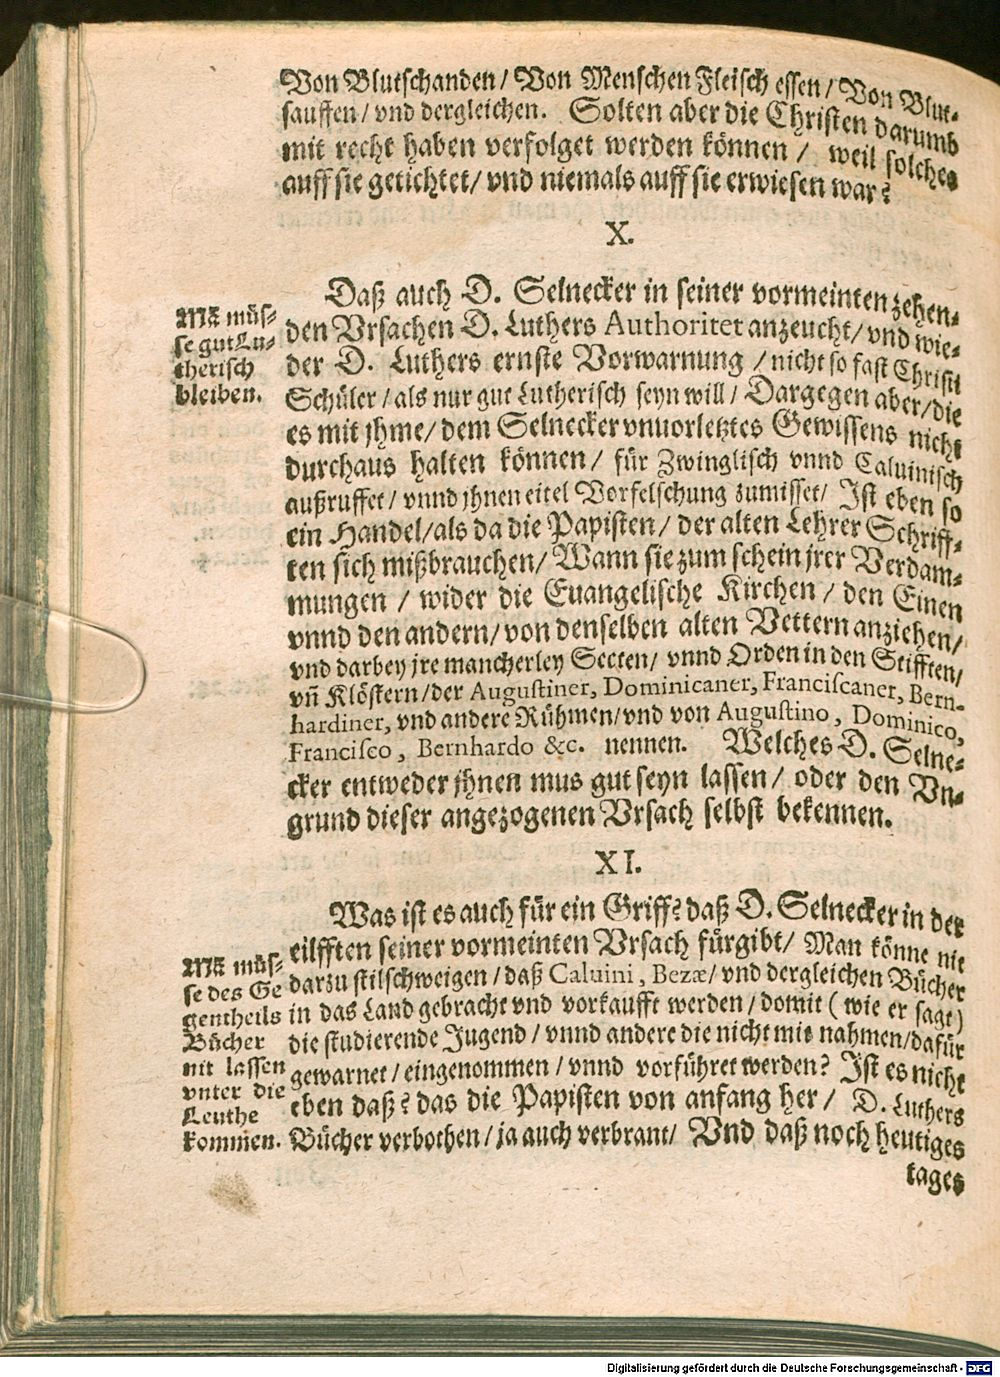 Von Blutschanden / Von Menschen Fleisch essen / Von Blut-
sauffen / vnd dergleichen. Solten aber die Christen darumb
mit recht haben verfolget werden können / weil solches
auff sie getichtet / vnd niemals auff sie erwiesen war?
X.
Daß auch D. Selnecker in seiner vormeinten zehen-
den Vrsachen D. Luthers Authoritet anzeucht / vnd wie-
der D. Luthers ernste Vorwarnung / nicht so fast Christi
Schüler / als nur gut Lutherisch seyn will / Dargegen aber / die
es mit jhme / dem Selnecker vnuorletztes Gewissens nicht
durchaus halten können / für Zwinglisch vnnd Caluinisch
außruffet / vnnd jhnen eitel Vorfelschung zumisset / Ist eben so
ein Handel / als da die Papisten / der alten Lehrer Schriff-
ten sich mißbrauchen / Wann sie zum schein jrer Verdam-
mungen / wider die Euangelische Kirchen / den Einen
vnnd den andern / von denselben alten Vettern anziehen /
vnd darbey jre mancherley Secten / vnnd Orden in den Stifften /
vñ Klöstern / der Augustiner, Dominicaner, Franciscaner, Bern-
hardiner, vnd andere Rühmen / vnd von Augustino, Dominico,
Francisco, Bernhardo &c. nennen. Welches D. Selne-
cker entweder jhnen mus gut seyn lassen / oder den Vn-
grund dieser angezogenen Vrsach selbst bekennen.
Mã müs-
se gut Lu-
therisch
bleiben.
XI.
Was ist es auch für ein Griff? daß D. Selnecker in der
eilfften seiner vormeinten Vrsach fürgibt / Man könne nit
darzu stilschweigen / daß Caluini, Bezæ / vnd dergleichen Bücher
in das Land gebracht vnd vorkaufft werden / domit ( wie er sagt )
die studierende Jugend / vnnd andere die nicht mit nahmen / dafür
gewarnet / eingenommen / vnnd vorführet werden? Ist es nicht
eben daß? das die Papisten von anfang her / D. Luthers
Bücher verbothen / ja auch verbrant / Vnd daß noch heutiges
Mã müs-
se des Ge
gentheils
Bücher
nit lassen
vnter die
Leuthe
kommen.
tages
Digitalisierung gefördert durch die Deutsche Forschungsgemeinschaft - DFG